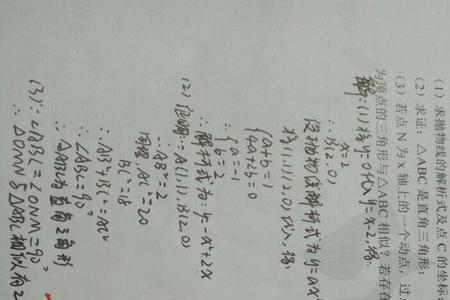 (1) 求抛物线的解析式及点 C 的坐标;
(2) 求证: △ABC 是直角三角形;
(3) 若点 N 为 x 轴上的一个动点, 过
为顶点的三角形与△ABC 相似? 若存在
解:(1)将y=0代入y=x-2,得:
x=2
∴B(2,0)
设抛物线解析式为y=ax
将(1,1)(2,0)代入,得:
{a+b=1
{4a+2b=0
{a=-1
{b=2
∴解析式为:y=-x²+2x
(2)证明:∵A(1,1),B(2,0)
∴AB²=2
同理,AC²=20
BC²=18
∴AB²+BC²=AC²
∴∠ABC=90°
∴△ABC为直角三角形
(3)∵∠ABC=∠ONM=90°
∴△OMN与△ABC相似有2